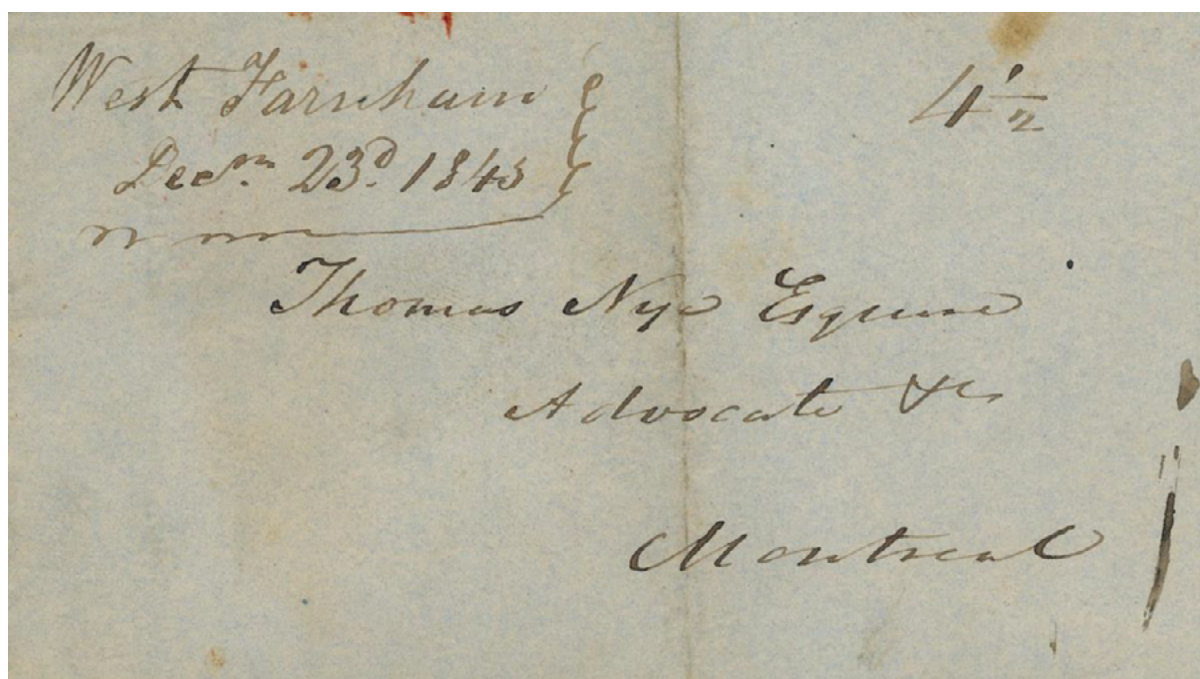 West Farnham
Decm. 23d. 1843
4½
Thomas Nye Esquire
Advocate &c
Montreal